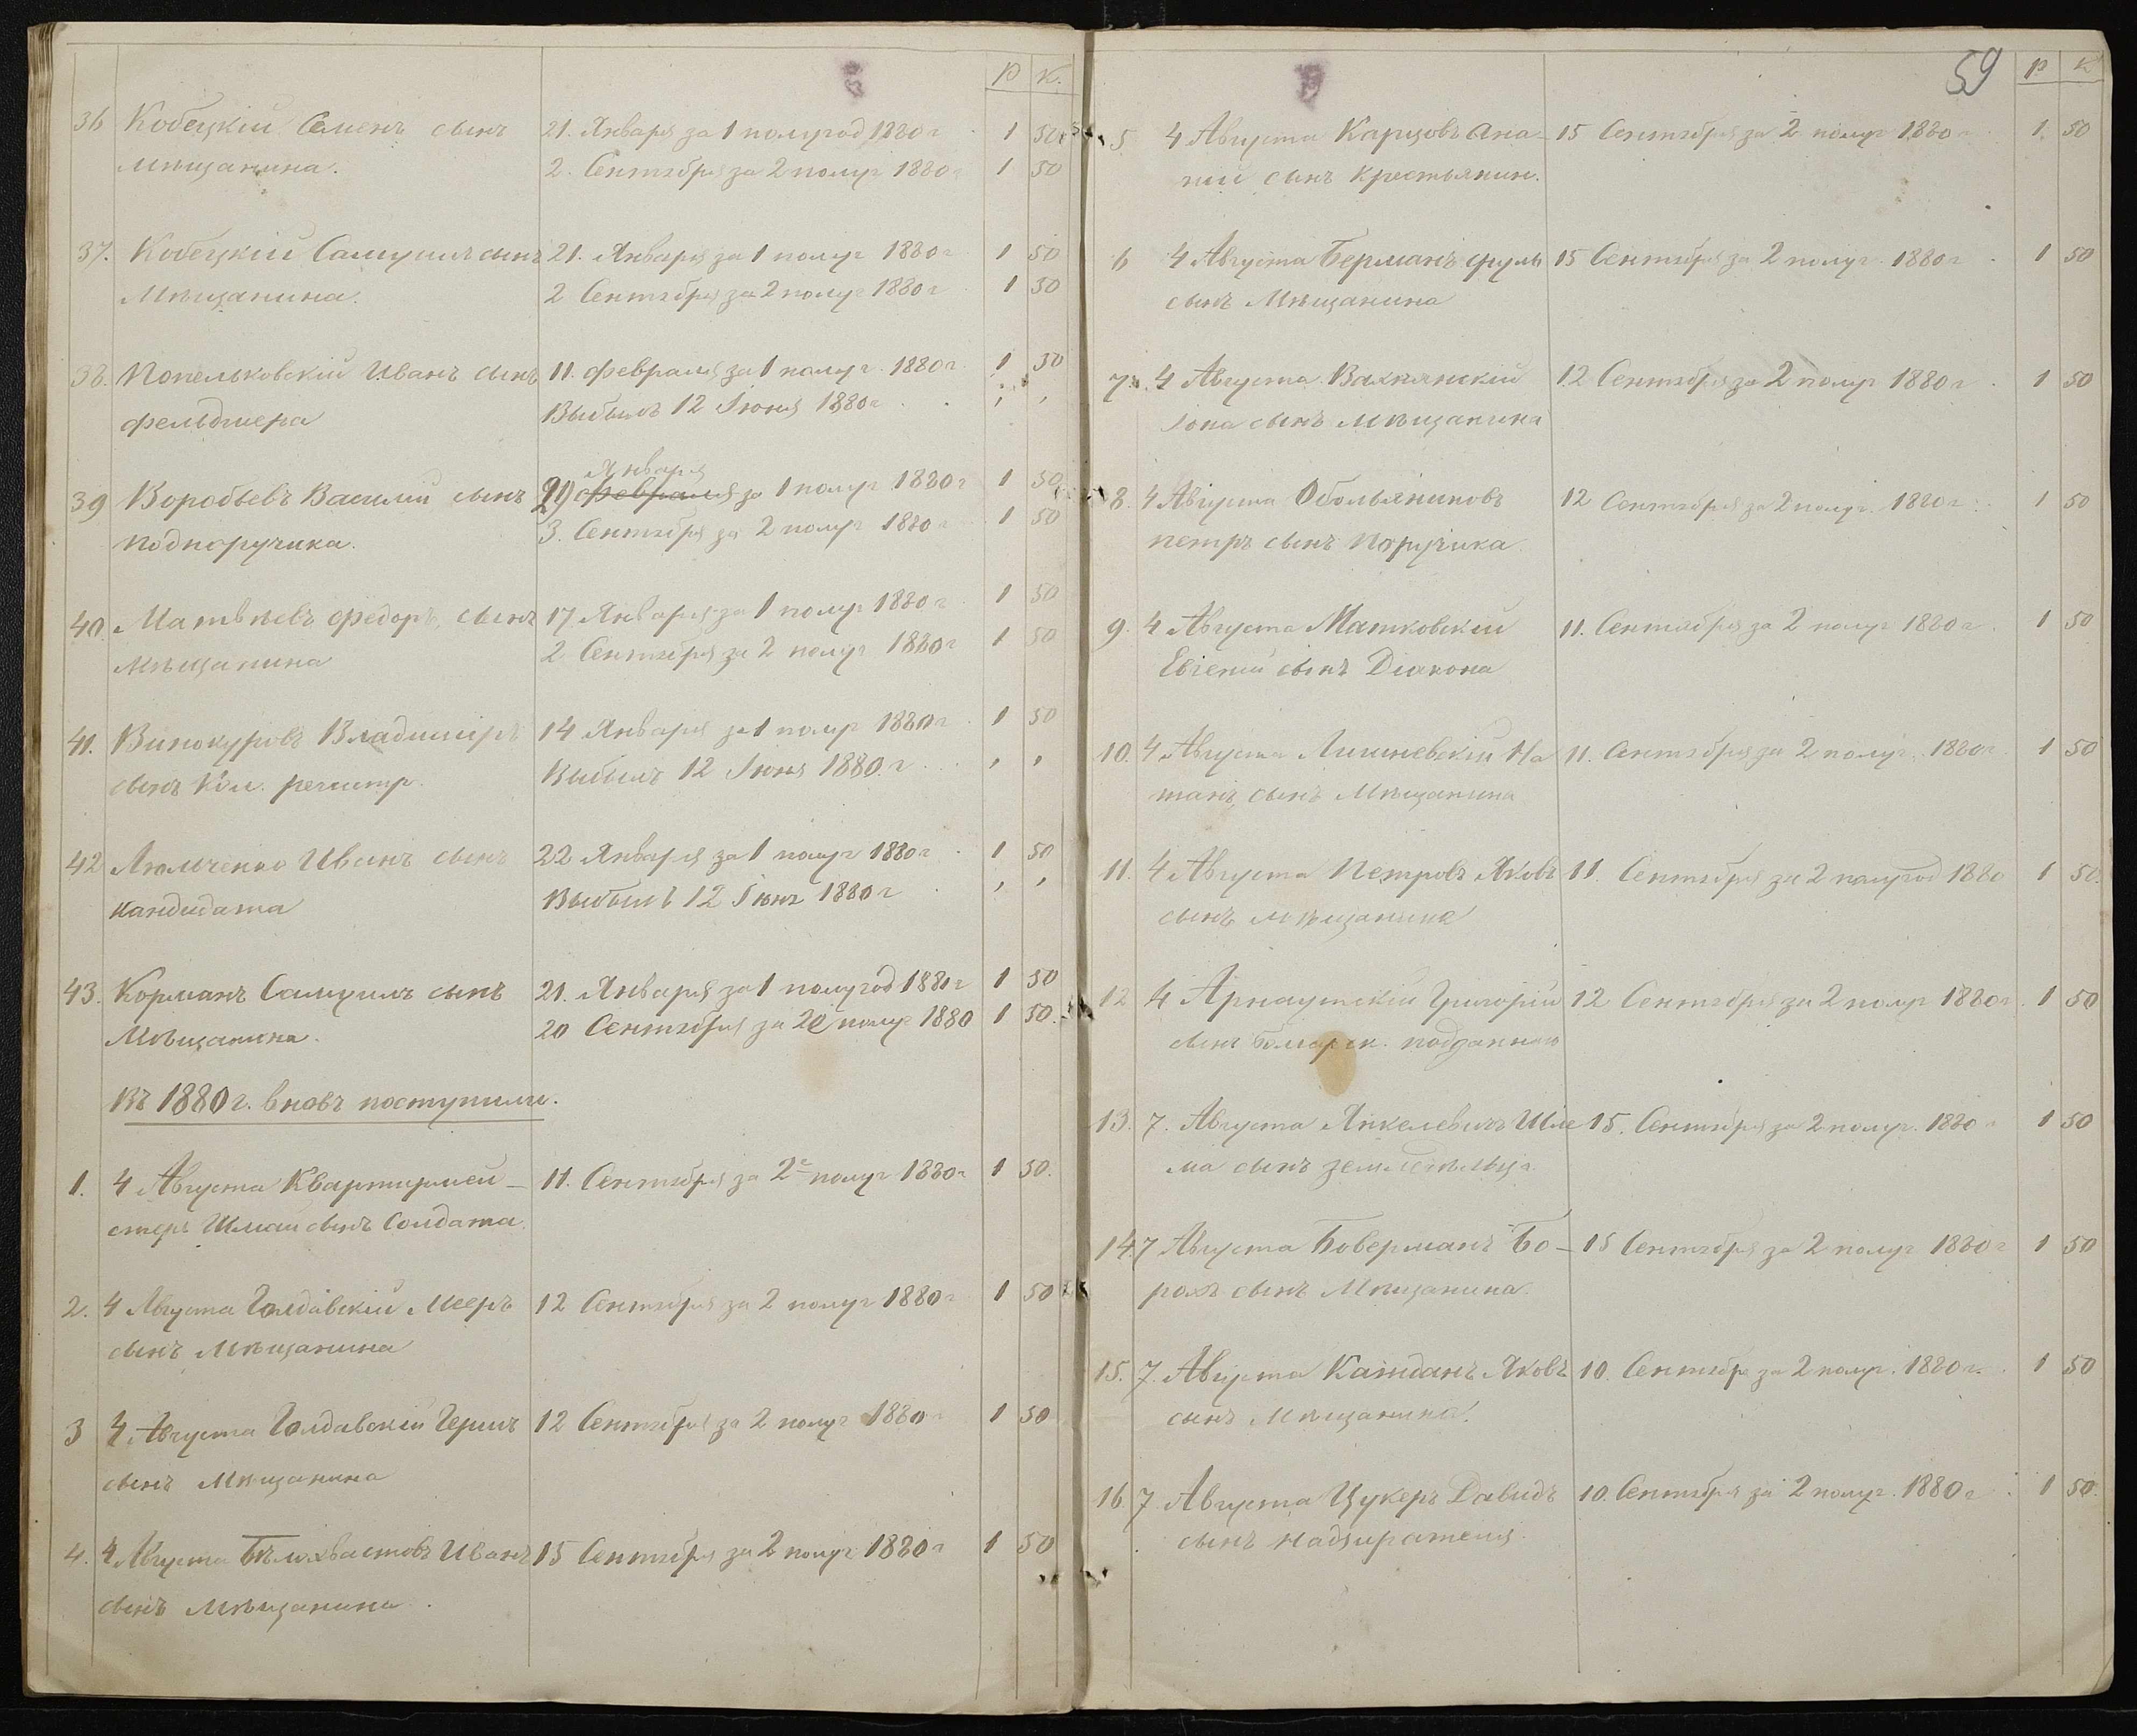 Р К.
36 Кобецкій Семенъ сынъ 21. Января за 1 полугод 1880 г 1 50
мѣщанина. 2. Сентября за 2 полуг 1880 г 1 50
37. Кобецкій Самуилъ сынъ 21. Января за 1 полуг 1880 г 1 50
Мѣщанина. 2 Сентября за 2 полуг 1880 г 1 50
38. Попельковскій Иванъ сынъ 11. февраля за 1 полуг. 1880 г. 1 50
фельдшера Выбылъ 12 Іюня 1880 г
Января
39 Воробьевъ Василій сынъ 21) февраля за 1 полуг 1880 г 1 50
подпоручика. 3. Сентября за 2 полуг 1880 г 1 50
40. Матвѣевъ Федоръ, сынъ 17 Января за 1 полуг 1880 г 1 50
мѣщанина 2 Сентября за 2 полуг 1880 г 1 50
41. Винокуровъ Владиміръ 14 Января за 1 полуг 1880 г 1 50
сынъ Кол. регистр. Выбылъ 12 Іюня 1880 г
42 Иванъ сынъ 22 Января за 1 полуг 1880 г 1 50
кандидата Выбылъ 12 Іюня 1880 г
43. Корманъ Самуилъ сынъ 21. Января за 1 полугод 1880 г 1 50
Мѣщанина. 20 Сентября за 2е полуг 1880 1 50.
Въ 1880 г. вновь поступили.
1. 4 Августа Квартирмей- 11. Сентября за 2е полуг 1880 г 1 50.
стеръ Шмай сынъ Солдата.
2. 4 Августа Голдавскій Мееръ 12 Сентября за 2 полуг 1880 г 1 50
сынъ Мѣщанина
3 4 Августа Голдавскій Гершъ 12 Сентября за 2 полуг 1880 г 1 50
сынъ Мѣщанина
4. 4 Августа Бѣлохвастовъ Иванъ 15 Сентября за 2 полуг 1880 г 1 50
сынъ мѣщанина.
59
Р К
5 4 Августа Карцовъ Ана- 15 Сентября за 2 полуг 1880 г 1. 50
ній сынъ крестьянин.
6 4 Августа Берманъ 15 Сентября за 2 полуг. 1880 г 1 50
сынъ Мѣщанина
7. 4 Августа 12 Сентября за 2 полуг 1880 г 1 50
Іона сынъ мѣщанина
8. 4 Августа Обольяниновъ 12 Сентября за 2 полуг. 1880 г. 1 50
петръ сынъ поручика
9. 4 Августа Матковскій 11. Сентября за 2 полуг 1880 г. 1 50
Евгеній сынъ Діакона
10. 4 Августа Лишневскій На 11. Сентября за 2 полуг. 1880 г. 1 50
танъ, сынъ Мѣщанина
11. 4 Августа Петровъ Яковъ 11. Сентября за 2 полугод 1880 1 50.
сынъ мѣщанина
12 4 Арнаутскій Григорій 12 Сентября за 2 полуг 1880 г. 1 50
сынъ Болгарск. подданнаго
13. 7. Августа Янкелевичъ Шле 15. Сентября за 2 полуг. 1880 г 1 50
ма сынъ земледѣльца
14. 7 Августа Боверманъ Бо- 15 Сентября за 2 полуг 1880 г 1 50
рохъ сынъ Мѣщанина.
15. 7. Августа Каждакъ Яковъ 10. Сентябре за 2 полуг. 1880 г. 1 50
сынъ Мѣщанина.
16. 7 Августа Цукеръ Давидъ 10. Сентября за 2 полуг. 1880 г. 1 50.
сынъ надзирателя.